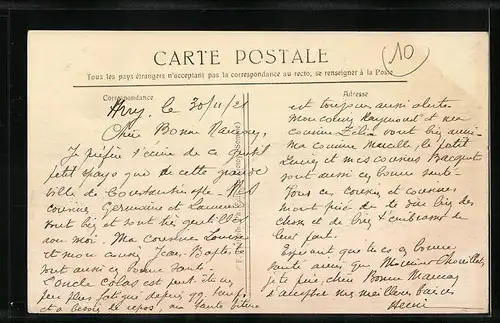 10
CARTE POSTALE
Tous les pays étrangers n'acceptant pas la correspondance au recto, se renseigner à la Poste
Correspondance
Adresse
le 30/11/21
Chère Bonne Maman,
Je préfère t'écrire de ce gentil
petit pays que de cette grande
ville de Constantinople. Mes
cousines Germaine et
vont bien et sont très gentilles
pour moi. Ma cousine Louise
et mon cousin Jean-Baptiste
vont aussi en bonne santé.
L'oncle Colas est peut être un
peu plus fatigué depuis qq temps
et a besoin de repos, sa santé
est toujours aussi
Mon cousin Raymond et ma
cousine vont bien aussi
Ma cousine Marcelle, le petit
et mes cousins
sont aussi en bonne santé.
Tous ces cousins et cousines
m'ont prié de te dire bien des
choses et de bien t'embrasser de
leur part.
Espérant que tu es en bonne
santé ainsi que Monsieur
je te prie, chère Bonne Maman
d'accepter mes meilleurs baisers
Henri